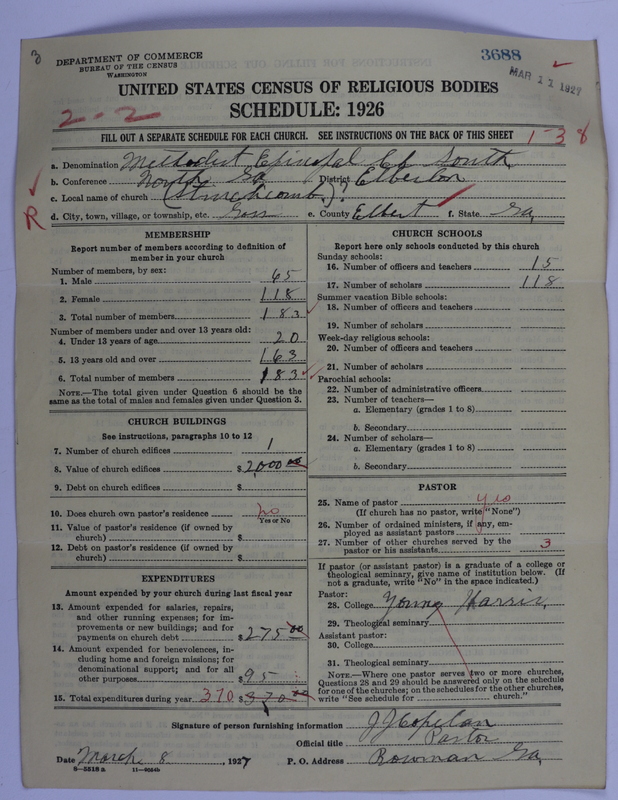 3
DEPARTMENT OF COMMERCE
BUREAU OF THE CENSUS
WASHINGTON
3688
MAR 11 1927
UNITED STATES CENSUS OF RELIGIOUS BODIES
SCHEDULE: 1926
2-2
FILL OUT A SEPARATE SCHEDULE FOR EACH CHURCH. SEE INSTRUCTIONS ON THE BACK OF THIS SHEET
1-38
a. Denomination Methodist Episcopal Ch South
b. Conference North Ga District Elberton
c. Local name of church (Stinchcomb)
R
d. City, town, village, or township, etc. Goss e. County Elbert f. State Ga,
MEMBERSHIP
Report number of members according to definition of member in your church
Number of members, by sex:
1. Male 65
2. Female 118
3. Total number of members 183
Number of members under and over 13 years old:
4. Under 13 years of age 20
5. 13 years old and over 163
6. Total number of members 183
NOTE.—The total given under Question 6 should be the
same as the total of males and females given under Question 3.
CHURCH BUILDINGS
See instructions, paragraphs 10 to 12
7. Number of church edifices 1
8. Value of church edifices $2,000 00
9. Debt on church edifices $
10. Does church own pastor's residence no
Yes or No
11. Value of pastor's residence (if owned by
church) $
12. Debt on pastor's residence (if owned by
church) $
EXPENDITURES
Amount expended by your church during last fiscal year
13. Amount expended for salaries, repairs,
and other running expenses; for im-
provements or new buildings; and for
payments on church debt $275 00
14. Amount expended for benevolences, in-
cluding home and foreign missions; for
denominational support; and for all
other purposes $95
15. Total expenditures during year 370 $370 00
CHURCH SCHOOLS
Report here only schools conducted by this church
Sunday schools:
16. Number of officers and teachers 15
17. Number of scholars 118
Summer vacation Bible schools:
18. Number of officers and teachers
19. Number of scholars
Week-day religious schools:
20. Number of officers and teachers
21. Number of scholars
Parochial schools:
22. Number of administrative officers
23. Number of teachers—
a. Elementary (grades 1 to 8)
b. Secondary
24. Number of scholars—
a. Elementary (grades 1 to 8)
b. Secondary
PASTOR
25. Name of pastor yes
(If church has no pastor, write "None")
26. Number of ordained ministers, if any, em-
ployed as assistant pastors
27. Number of other churches served by the
pastor or his assistants 3
If pastor (or assistant pastor) is a graduate of a college or
theological seminary, give name of institution below. (If
not a graduate, write "No" in the space indicated.)
Pastor:
28. College Young Harris
29. Theological seminary
Assistant pastor:
30. College
31. Theological seminary
NOTE.—Where one pastor serves two or more churches,
Questions 28 and 29 should be answered only on the schedule
for one of the churches; on the schedules for the other churches,
write "See schedule for church."
Signature of person furnishing information J J Copelan
Official title Pastor
Date March 8, 1927 P. O. Address Bowman Ga,
8—5518 a 11—9054b